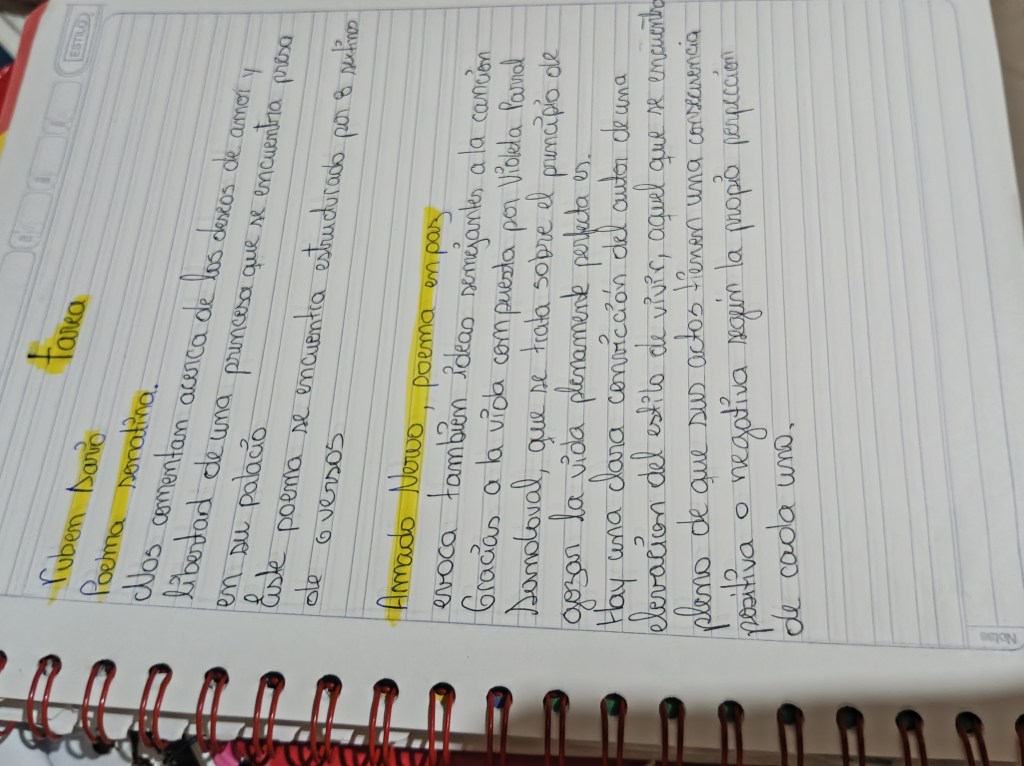 Tarea
ruben Dario
Poema sonatina.
Nos comentan acerca de los deseos de amor y
libertad de una princesa que se encuentra presa
en su palacio
Este poema se encuentra estructurado por 8 setinos
de 6 versos
Amado Nervo, poema en paz
evoca también ideas semejantes a la canción
Gracias a la vida compuesta por Violeta Parral
Sandoval, que se trata sobre el principio de
gozar la vida plenamente perfecta es.
Hay una clara convicción del autor de una
elevación del estilo de vivir, aquel que se encuentra
pleno de que sus actos tienen una consecuencia
positiva o negativa según la propia percepción
de cada uno.
Notas
ESTILO